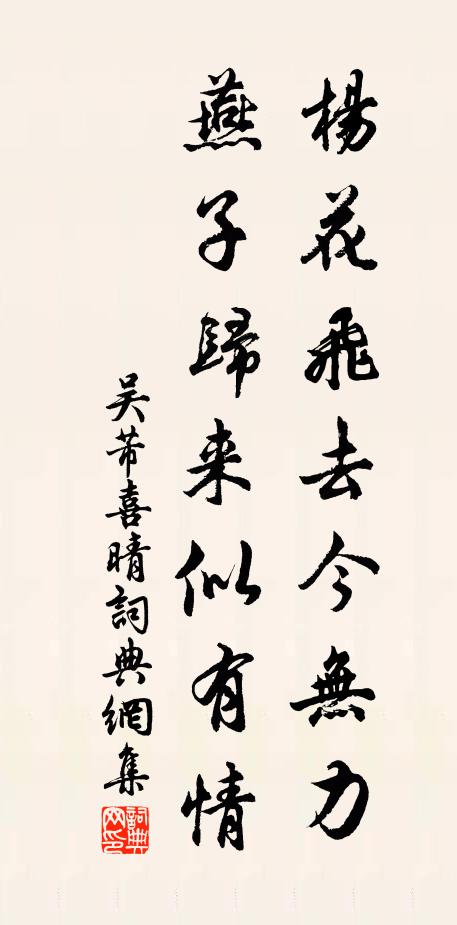 楊花飛去今無力
燕子歸来似有情
吴芾喜晴詞典網集
詞典网印